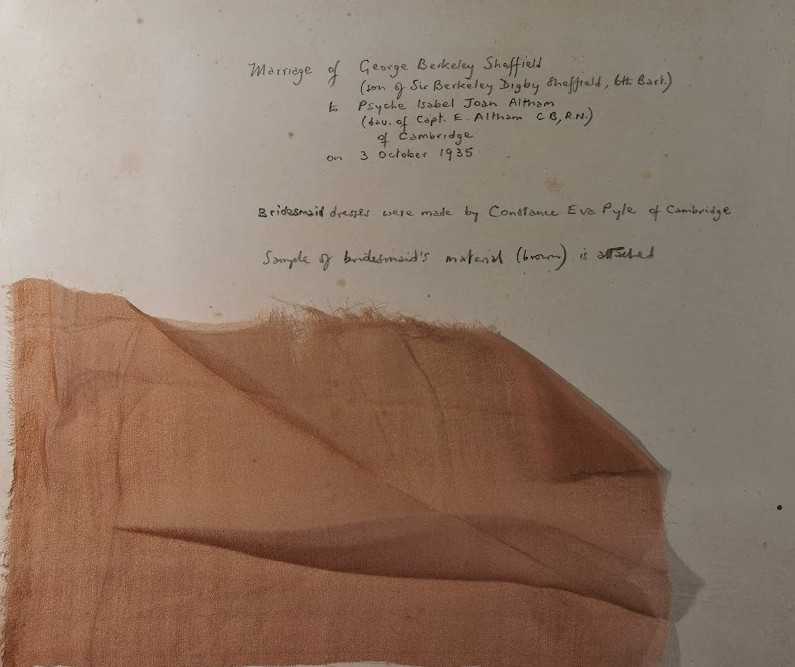 Marriage of George Berkeley Sheffield
(son of Sir Berkeley Digby Sheffield, 6th Bart.)
to Psyche Isabel Joan Altham
(dau. of Capt. E. Altham CB, R.N.)
of Cambridge
on 3 October 1935
Bridesmaid dresses were made by Constance Eva Pyle of Cambridge
Sample of bridesmaid's material (brown) is attached